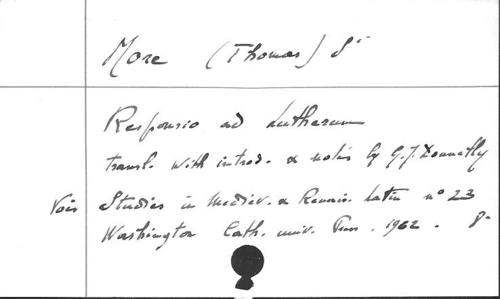 More (Thomas) St
Responsio ad Lutherum
transl. with introd. & notes by G.J. Donnelly
Voir Studies in Mediev. & Renais. Latin n° 23
Washington Cath. univ. Press. 1962. 8°